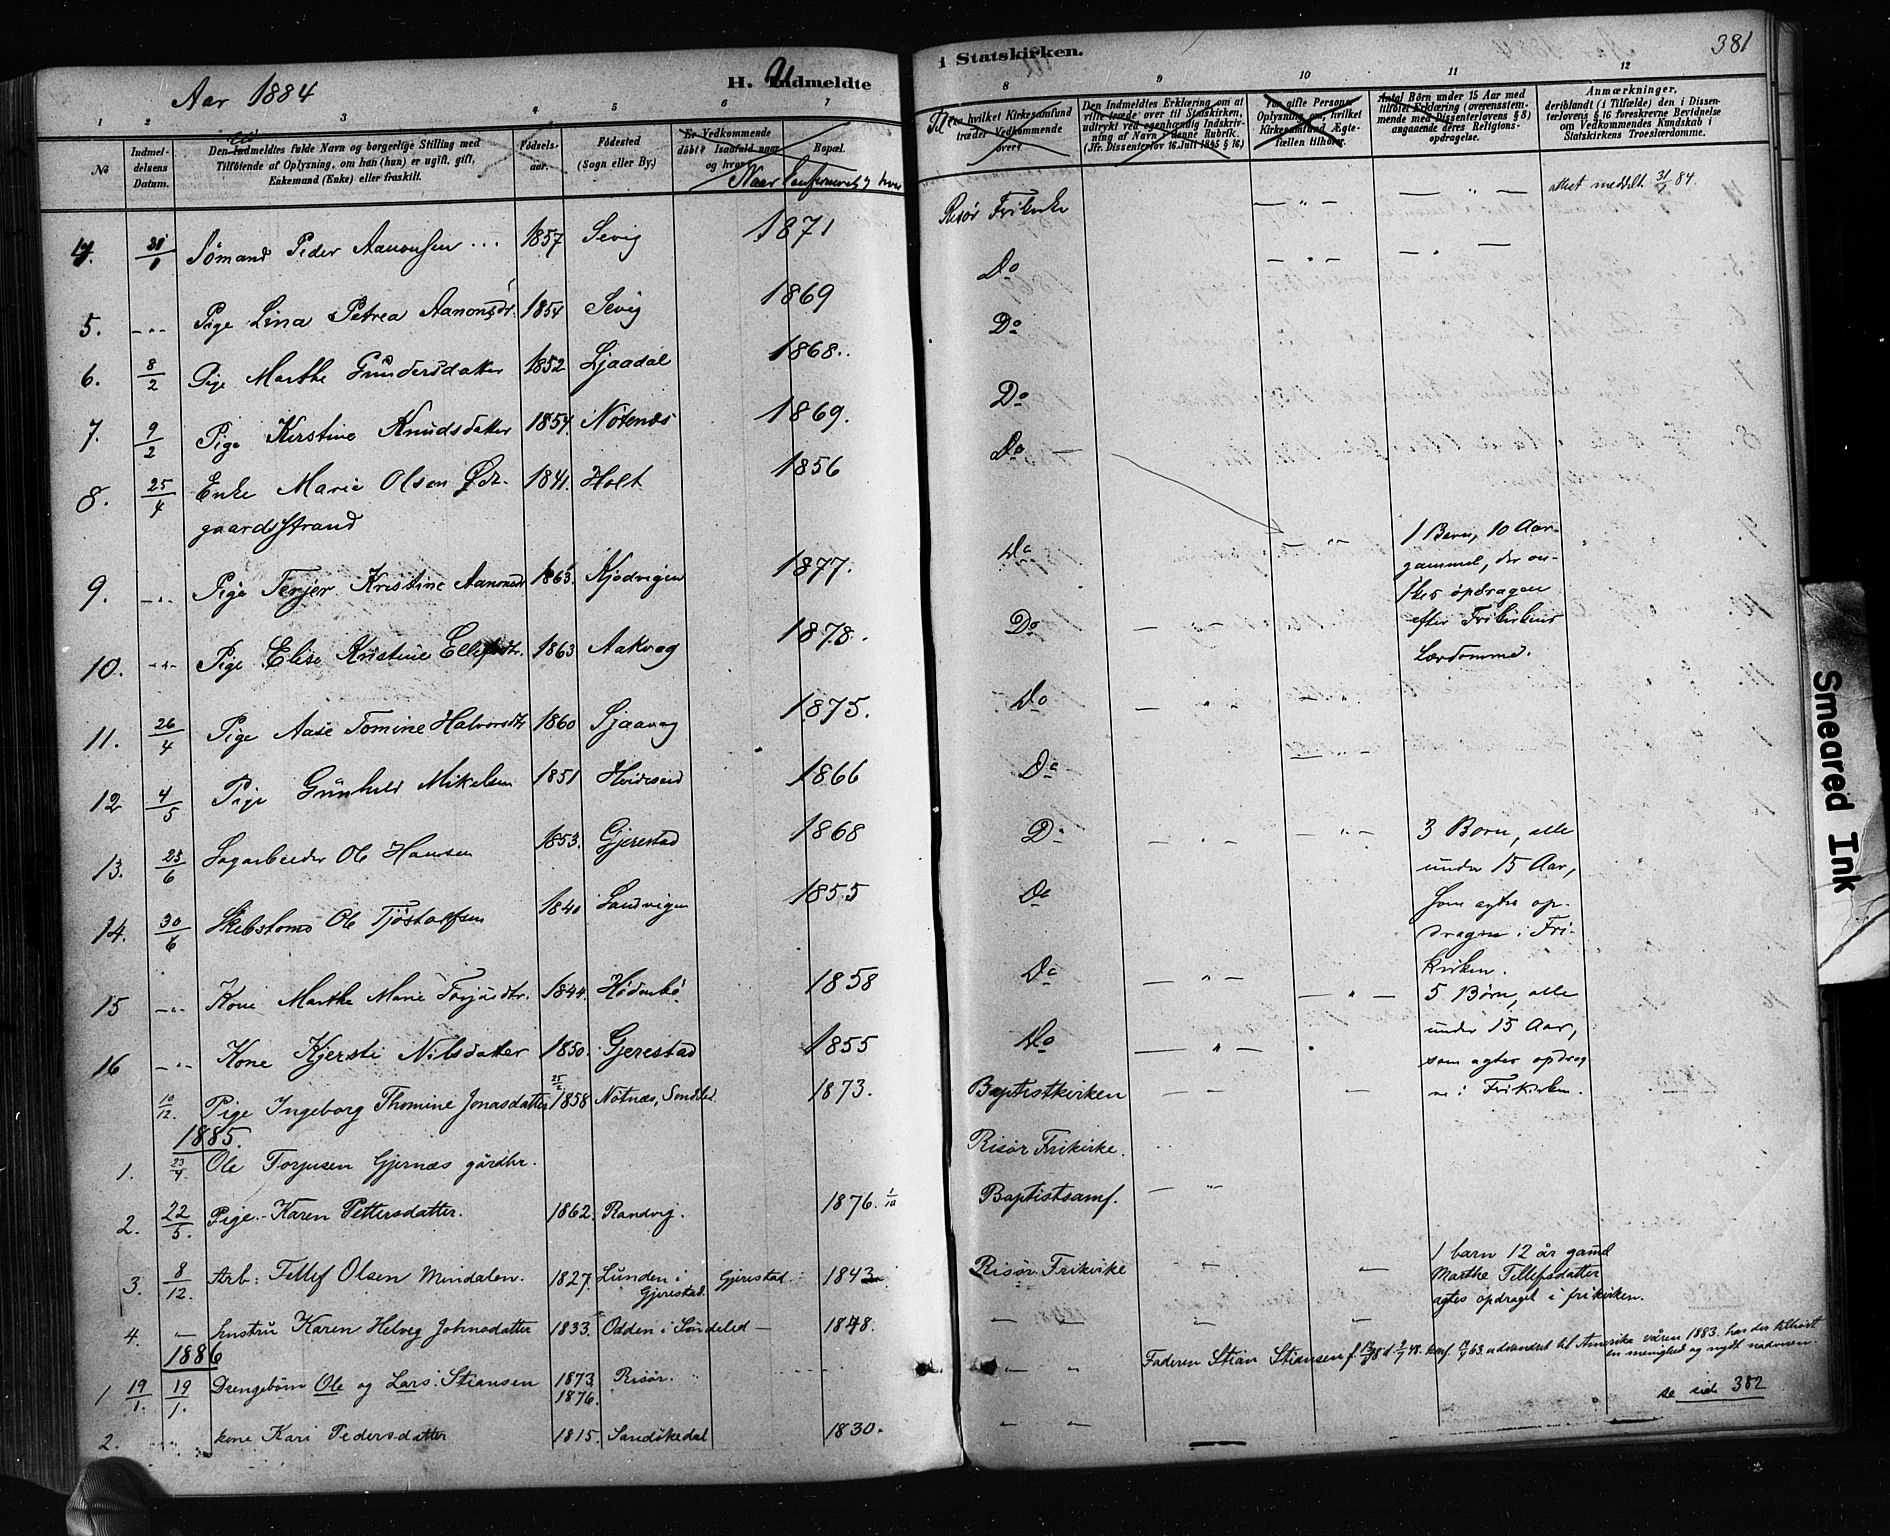 Aar 1884
H. Indmeldte
i Statskirken.
381
1 2 3 4 5 6 7 8 9 10 11 12
No
Indmeldelsens Datum.
Den Indmeldtes fulde Navn og borgerlige Stilling med
Tilføiende af Oplysning, om han (hun) er ugift, gift,
Enkemand (Enke) eller fraskilt.
Fødselsaar.
Fødested
(Sogn eller By.)
Er Vedkommende
døbt? Isaafald naar
og hvor?
Bopæl.
Naar konfirmeret, hvor
hvilket Kirkesamfund
træder Vedkommende
over?
Den Indmeldtes Erklæring om at
ville træde over til Statskirken,
udtrykt ved egenhændig Indskrivning af Navn i denne Rubrik.
(Jfr. Dissenterlov 16. Juli 1845 § 16.)
For gifte Personer
Oplysning om, hvilket
Kirkesamfund Ægtefællen tilhører.
Antal Børn under 15 Aar med
tilføiet Erklæring (overensstemmende med Dissenterlovens § 8)
angaaende deres Religionsopdragelse.
Anmærkninger,
deriblandt (i Tilfælde) den i Dissenterlovens § 16 foreskrevne Bevidnelse
om Vedkommendes Kundskab i
Statskirkens Troeslærdomme.
4. 31/1 Sømand Peder Aanonsen ... 1857 Sevig 1871 Risør Frikirke — " — — " — attest meddelt 31/1 84.
5. -"- Pige Lina Petrea Aanonsdr. 1854 Sevig 1869 Do — " — — " —
6. 8/2 Pige Marthe Gundersdatter 1852 Ljaadal 1868. Do
7. 9/2 Pige Kirstine Knudsdatter 1854. Nötenes 1869. Do
8. 25/4 Enke Marie Olsen Ødegaardsstrand 1841. Holt 1856 Do
1 Barn, 10 Aar
gammel, der ønskes opdragen
efter Frikirkens
Lærdomme.
9. -"- Pige Terjer Kristine Aanonsdr 1863. Kjödvigen 1877. Do
10. -"- Pige Elise Kristine Ellefsdtr. 1863 Aakvag 1878. Do
11. 26/4 Pige Aase Tomine Halvorsdtr 1860 Sjaavag 1875. Do
12 4/5 Pige Gunhild Mikelsen 1851 Hvideseid 1866 Do
13. 23/6 Sagarbeider Ole Hansen 1853. Gjerestad 1868 Do — " — — " —
3 Børn, alle
under 15 Aar,
som agtes opdragne i Frikirken.
14. 30/6 Skibstømd Ole Tjøstolfsen 1840 Sandvigen 1855 Do
15 -"- Kone Marthe Marie Torjusdtr. 1844. Hödnebö 1858 Do — " — — " —
5 Børn, alle
under 15 Aar,
som agtes opdragne i Frikirken.
16 -"- Kone Kjersti Nilsdatter 1850. Gjerestad 1855 Do — " —
10/12. Pige Ingeborg Thomine Jonasdatter 25/2 1858 Nötnæs, Sondeled 1873. Baptistkirken
1885.
1. 23/4. Ole Torjusen Gjernæs gårdbr. Risør Frikirke.
2. 22/5. Pige. Karen Pettersdatter. 1862. Randvig. 1876. 1/10 Baptistsamf.
3. 8/12. Arb: Tellef Olsen Mindalen. 1827. Lunden i Gjerestad. Gjerestad 1843 Risør Frikirke
1 barn 12 år gaml
Marthe Tellefsdatter
agtes opdraget i frikirken.
4. — hustru Karen Helvig Johnsdatter 1833. Odden i Söndeled — 1848.
1886
1 19/1. 19/1. Drengebörn Ole og Lars Stiansen 1873 1876. Risør.
Faderen Stian Stiansen udvandret til Amerika våren 1883. har der tilhört
en menighed og nydt nadveren.
se side 382
2. " kone Kari Pedersdatter 1815. Sandökedal 1830.
Smeared Ink